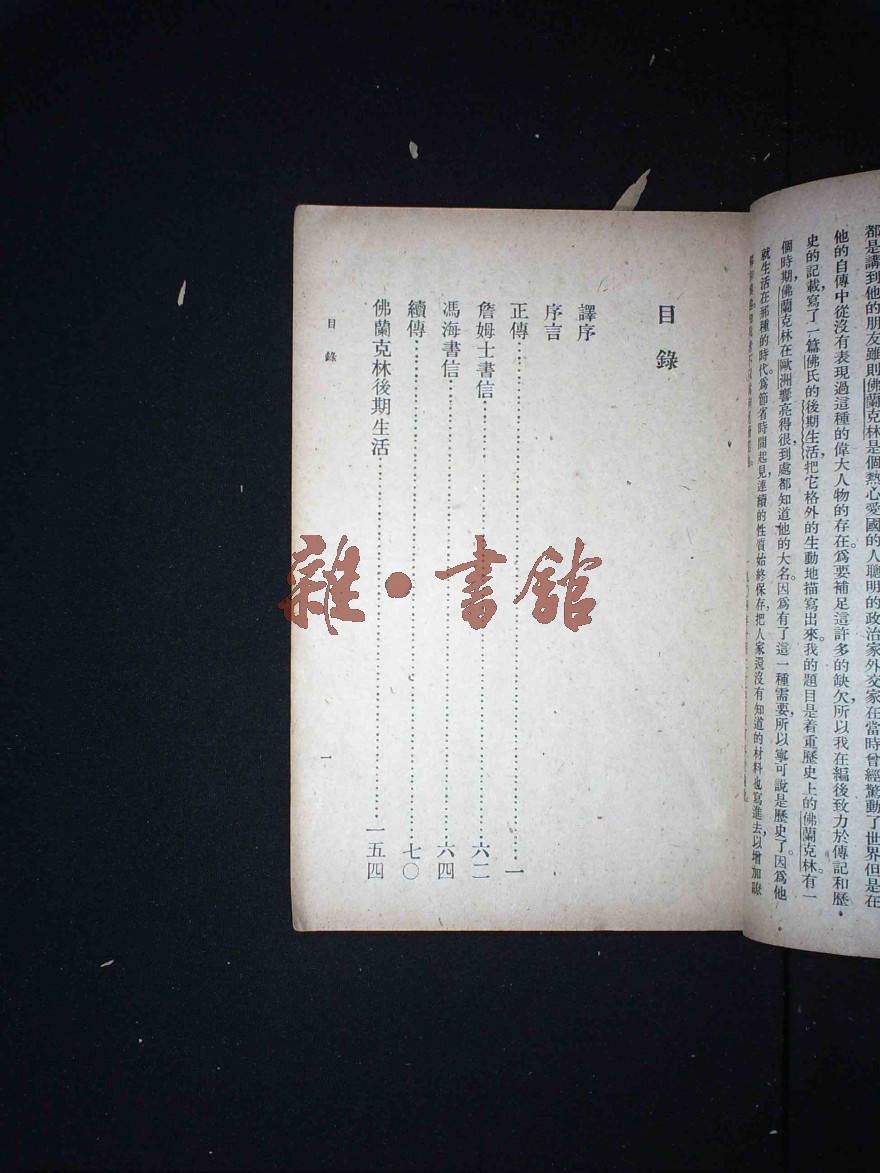 都是講到他的朋友雖則佛蘭克林是個熱心愛國的人聰明的政治家外交家在當時曾經驚動了世界但是在
他的自傳中從沒有表現過這種的偉大人物的存在。爲要補足這許多的缺欠，所以我在編後致力於傳記和歷
史的記載，寫了一篇佛氏的後期生活，把它格外的生動地描寫出來。我的題目是着重歷史上的佛蘭克林。有一
個時期，佛蘭克林在歐洲響亮得很，到處都知道他的大名。因爲有了這一種需要，所以寧可說是歷史了。因爲他
就生活在那種的時代。爲節省時間起見，連續的性質始終保存，把人家還沒有知道的材料也寫進去，以增加
目錄
譯序
序言
正傳……一
詹姆士書信……六二
馮海書信……六四
續傳……七〇
佛蘭克林後期生活……一五四
目錄
一
雜·書館